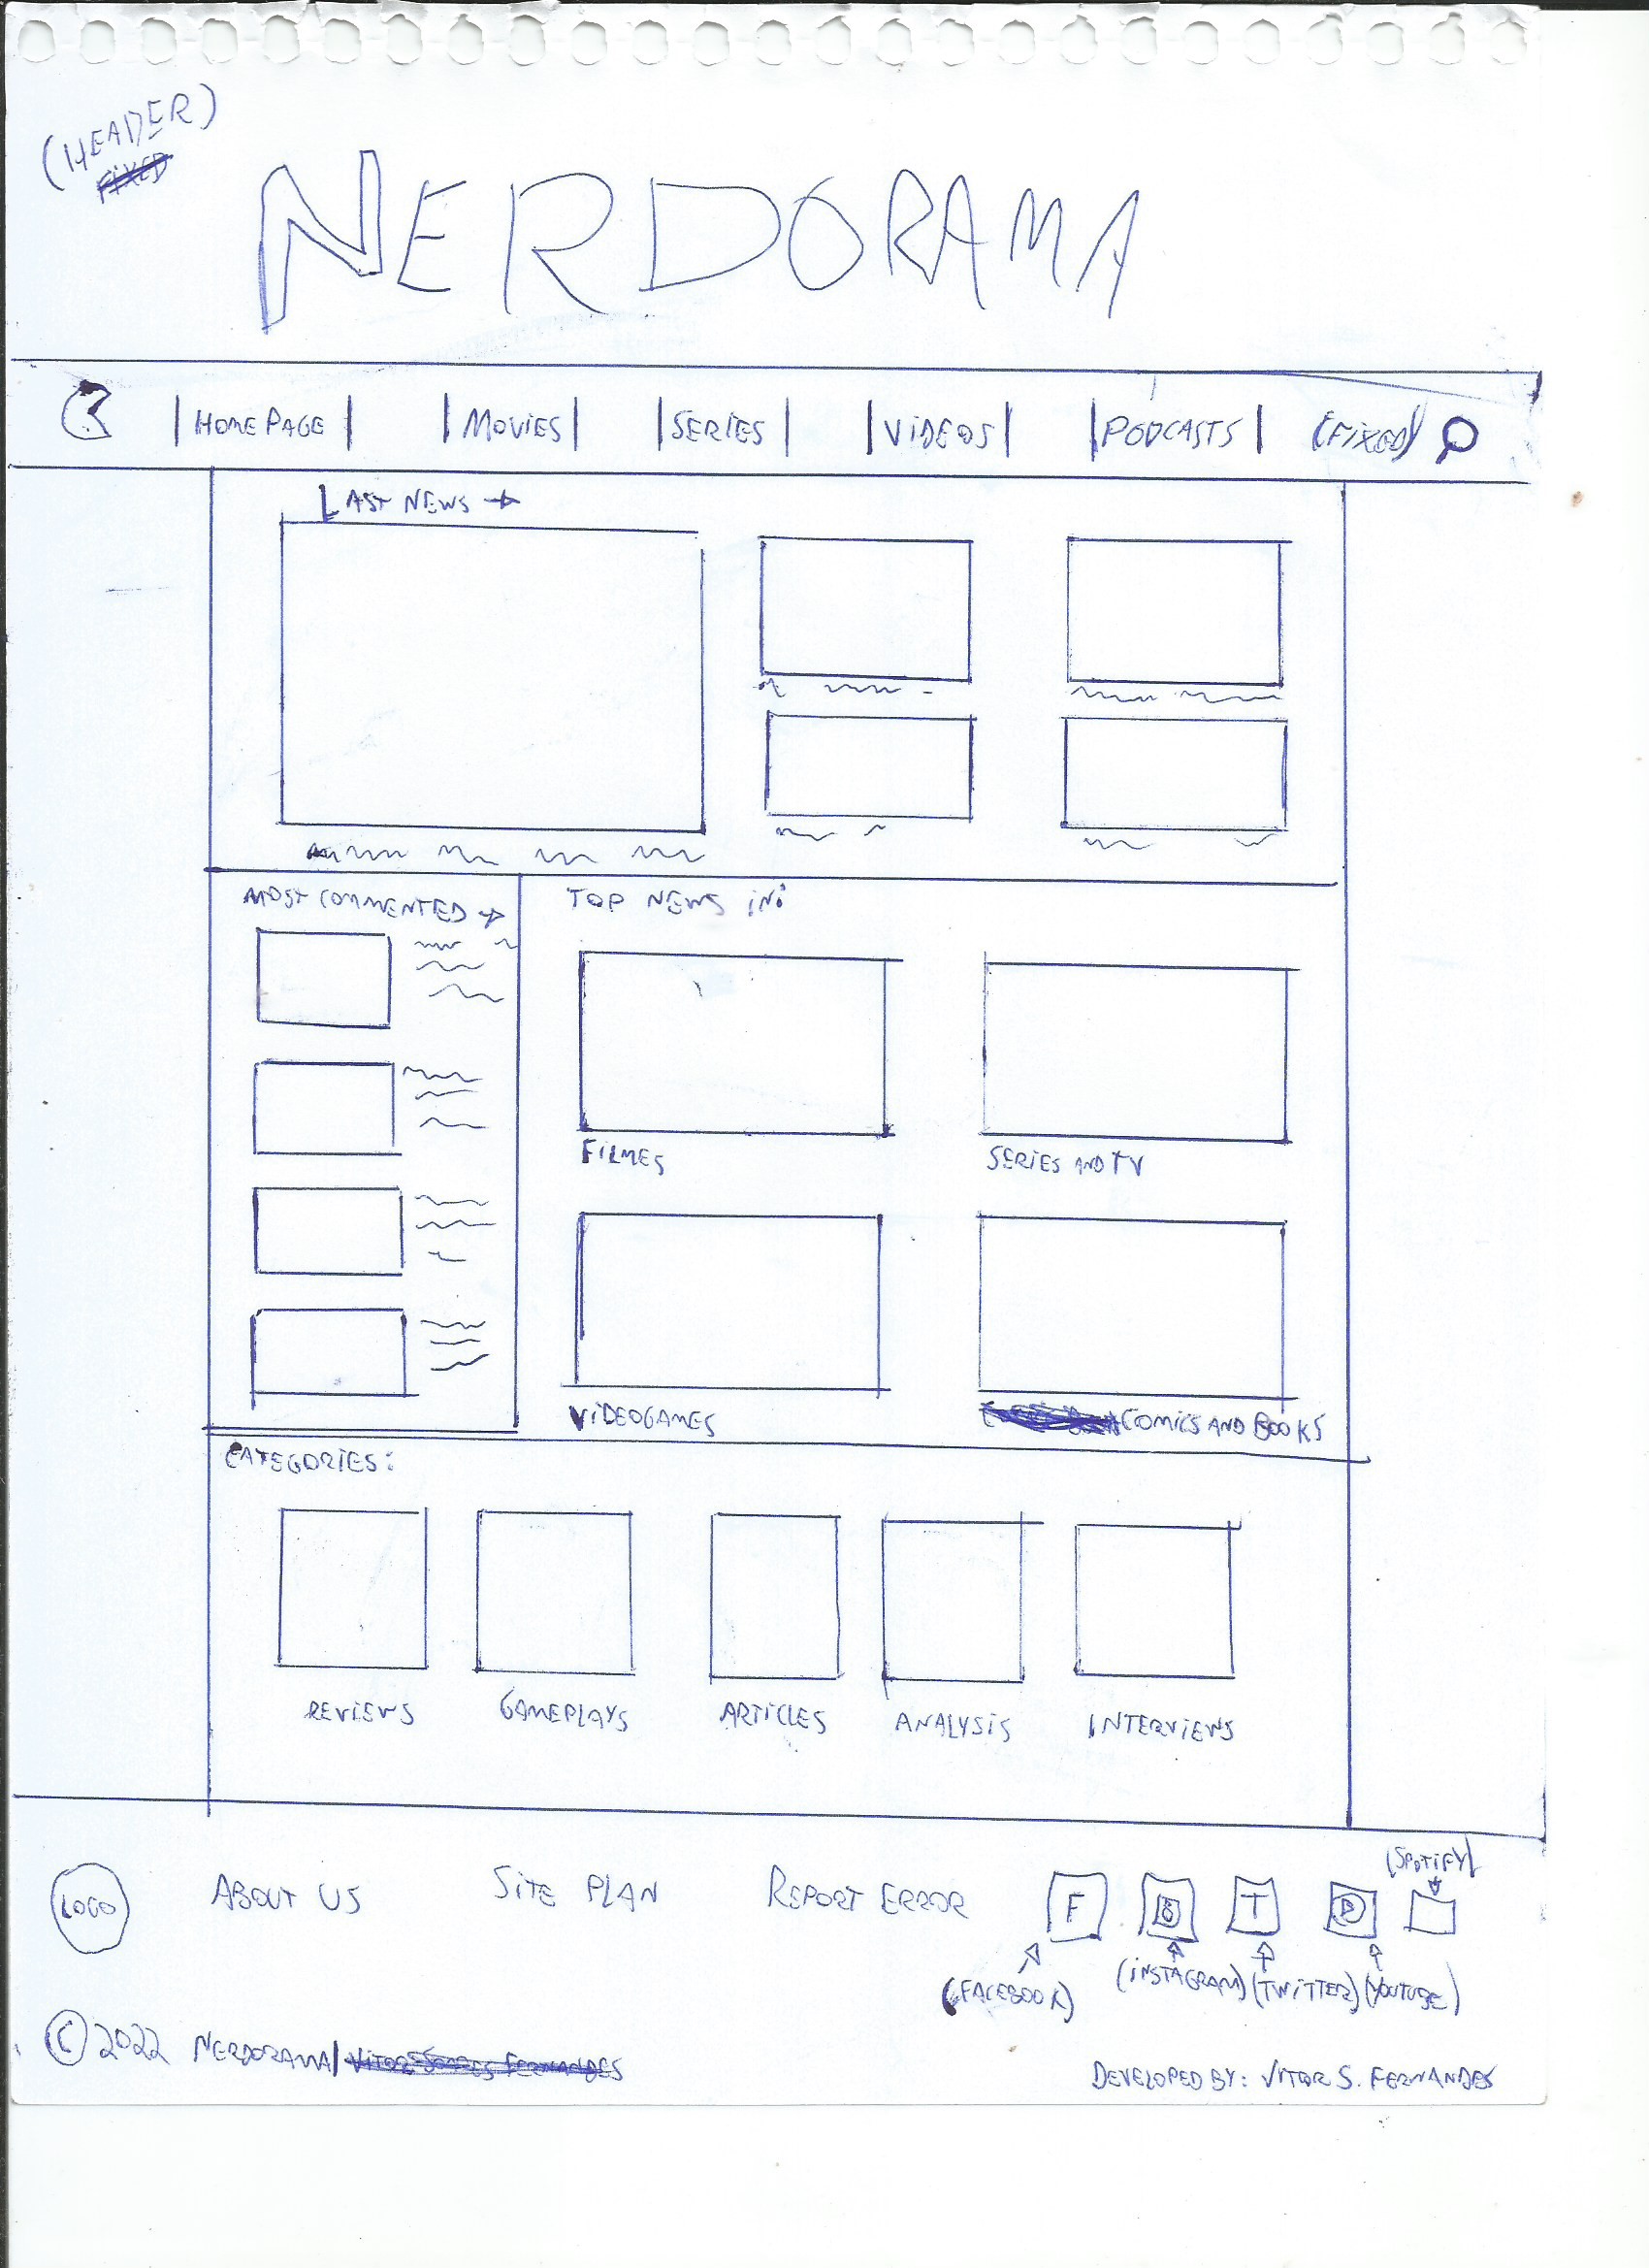 (HEADER)
FIXED
NERDORAMA
| HOMEPAGE | | MOVIES | | SERIES | | VIDEOS | | PODCASTS | (FIXED)
LAST NEWS →
MOST COMMENTED →
TOP NEWS IN:
FILMES
SERIES AND TV
VIDEOGAMES
COMICS AND BOOKS
CATEGORIES:
REVIEWS
GAMEPLAYS
ARTICLES
ANALYSIS
INTERVIEWS
LOGO
ABOUT US
SITE PLAN
REPORT ERROR
F
T
(SPOTIFY)
(FACEBOOK)
(INSTAGRAM)
(TWITTER)
(YOUTUBE)
© 2022 NERDORAMA|
DEVELOPED BY: VITOR S. FERNANDES